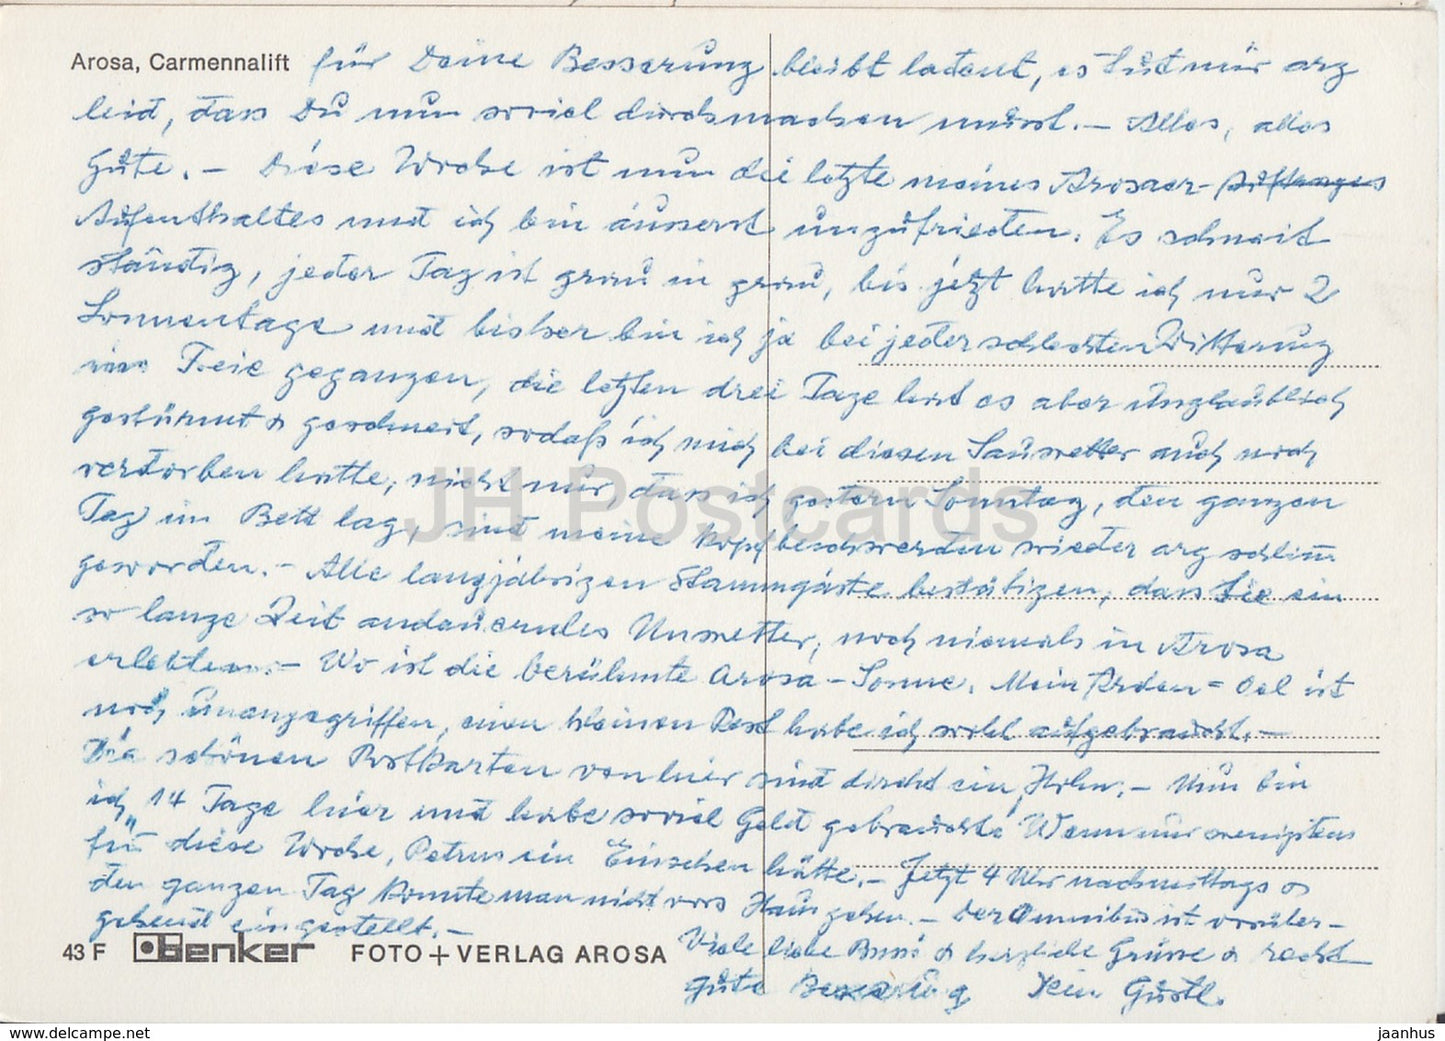 Arosa, Carmennalift für Deine Besserung bleibt latent, es tut mir arg
leid, dass Du nun soviel durchmachen musst.- Alles, alles
Gute.- Diese Woche ist nun die letzte meines Arosaer-
Aufenthaltes und ich bin äusserst unzufrieden. Es schneit
ständig, jeder Tag ist grau in grau, bis jetzt hatte ich nur 2
Sonnentage und bisher bin ich ja bei jeder schlechten Witterung
ins Freie gegangen, die letzten drei Tage hat es aber unglaublich
gestürmt & geschneit, sodaß ich mich bei diesen Sauwetter auch noch
verdorben hatte, nicht nur, dass ich gestern Sonntag, den ganzen
Tag im Bett lag, sind meine Kopfbeschwerden wieder arg schlimm
geworden.- Alle langjährigen Stammgäste bestätigen, dass Sie ein
so lange Zeit andauerndes Unwetter, noch niemals in Arosa
erlebten.- Wo ist die berühmte Arosa-Sonne. Mein Arden=Oel ist
noch unangegriffen, einen kleinen Rest habe ich wohl aufgebraucht.-
Die schönen Postkarten von hier sind direkt ein Hohn.- Nun bin
ich 14 Tage hier und habe soviel Geld gebraucht! Wenn nur wenigstens
für diese Woche, Petrus ein Einsehen hätte.- Jetzt 4 Uhr nachmittags &
den ganzen Tag konnte man nicht vors Haus gehen.- Der Omnibus ist vorüber-
gehend eingestellt.-
Viele liebe Bussi & herzliche Grüsse & recht
gute Besserung Dein Gustl.
43 F Benker FOTO+VERLAG AROSA
JH Postcards
jaanhus